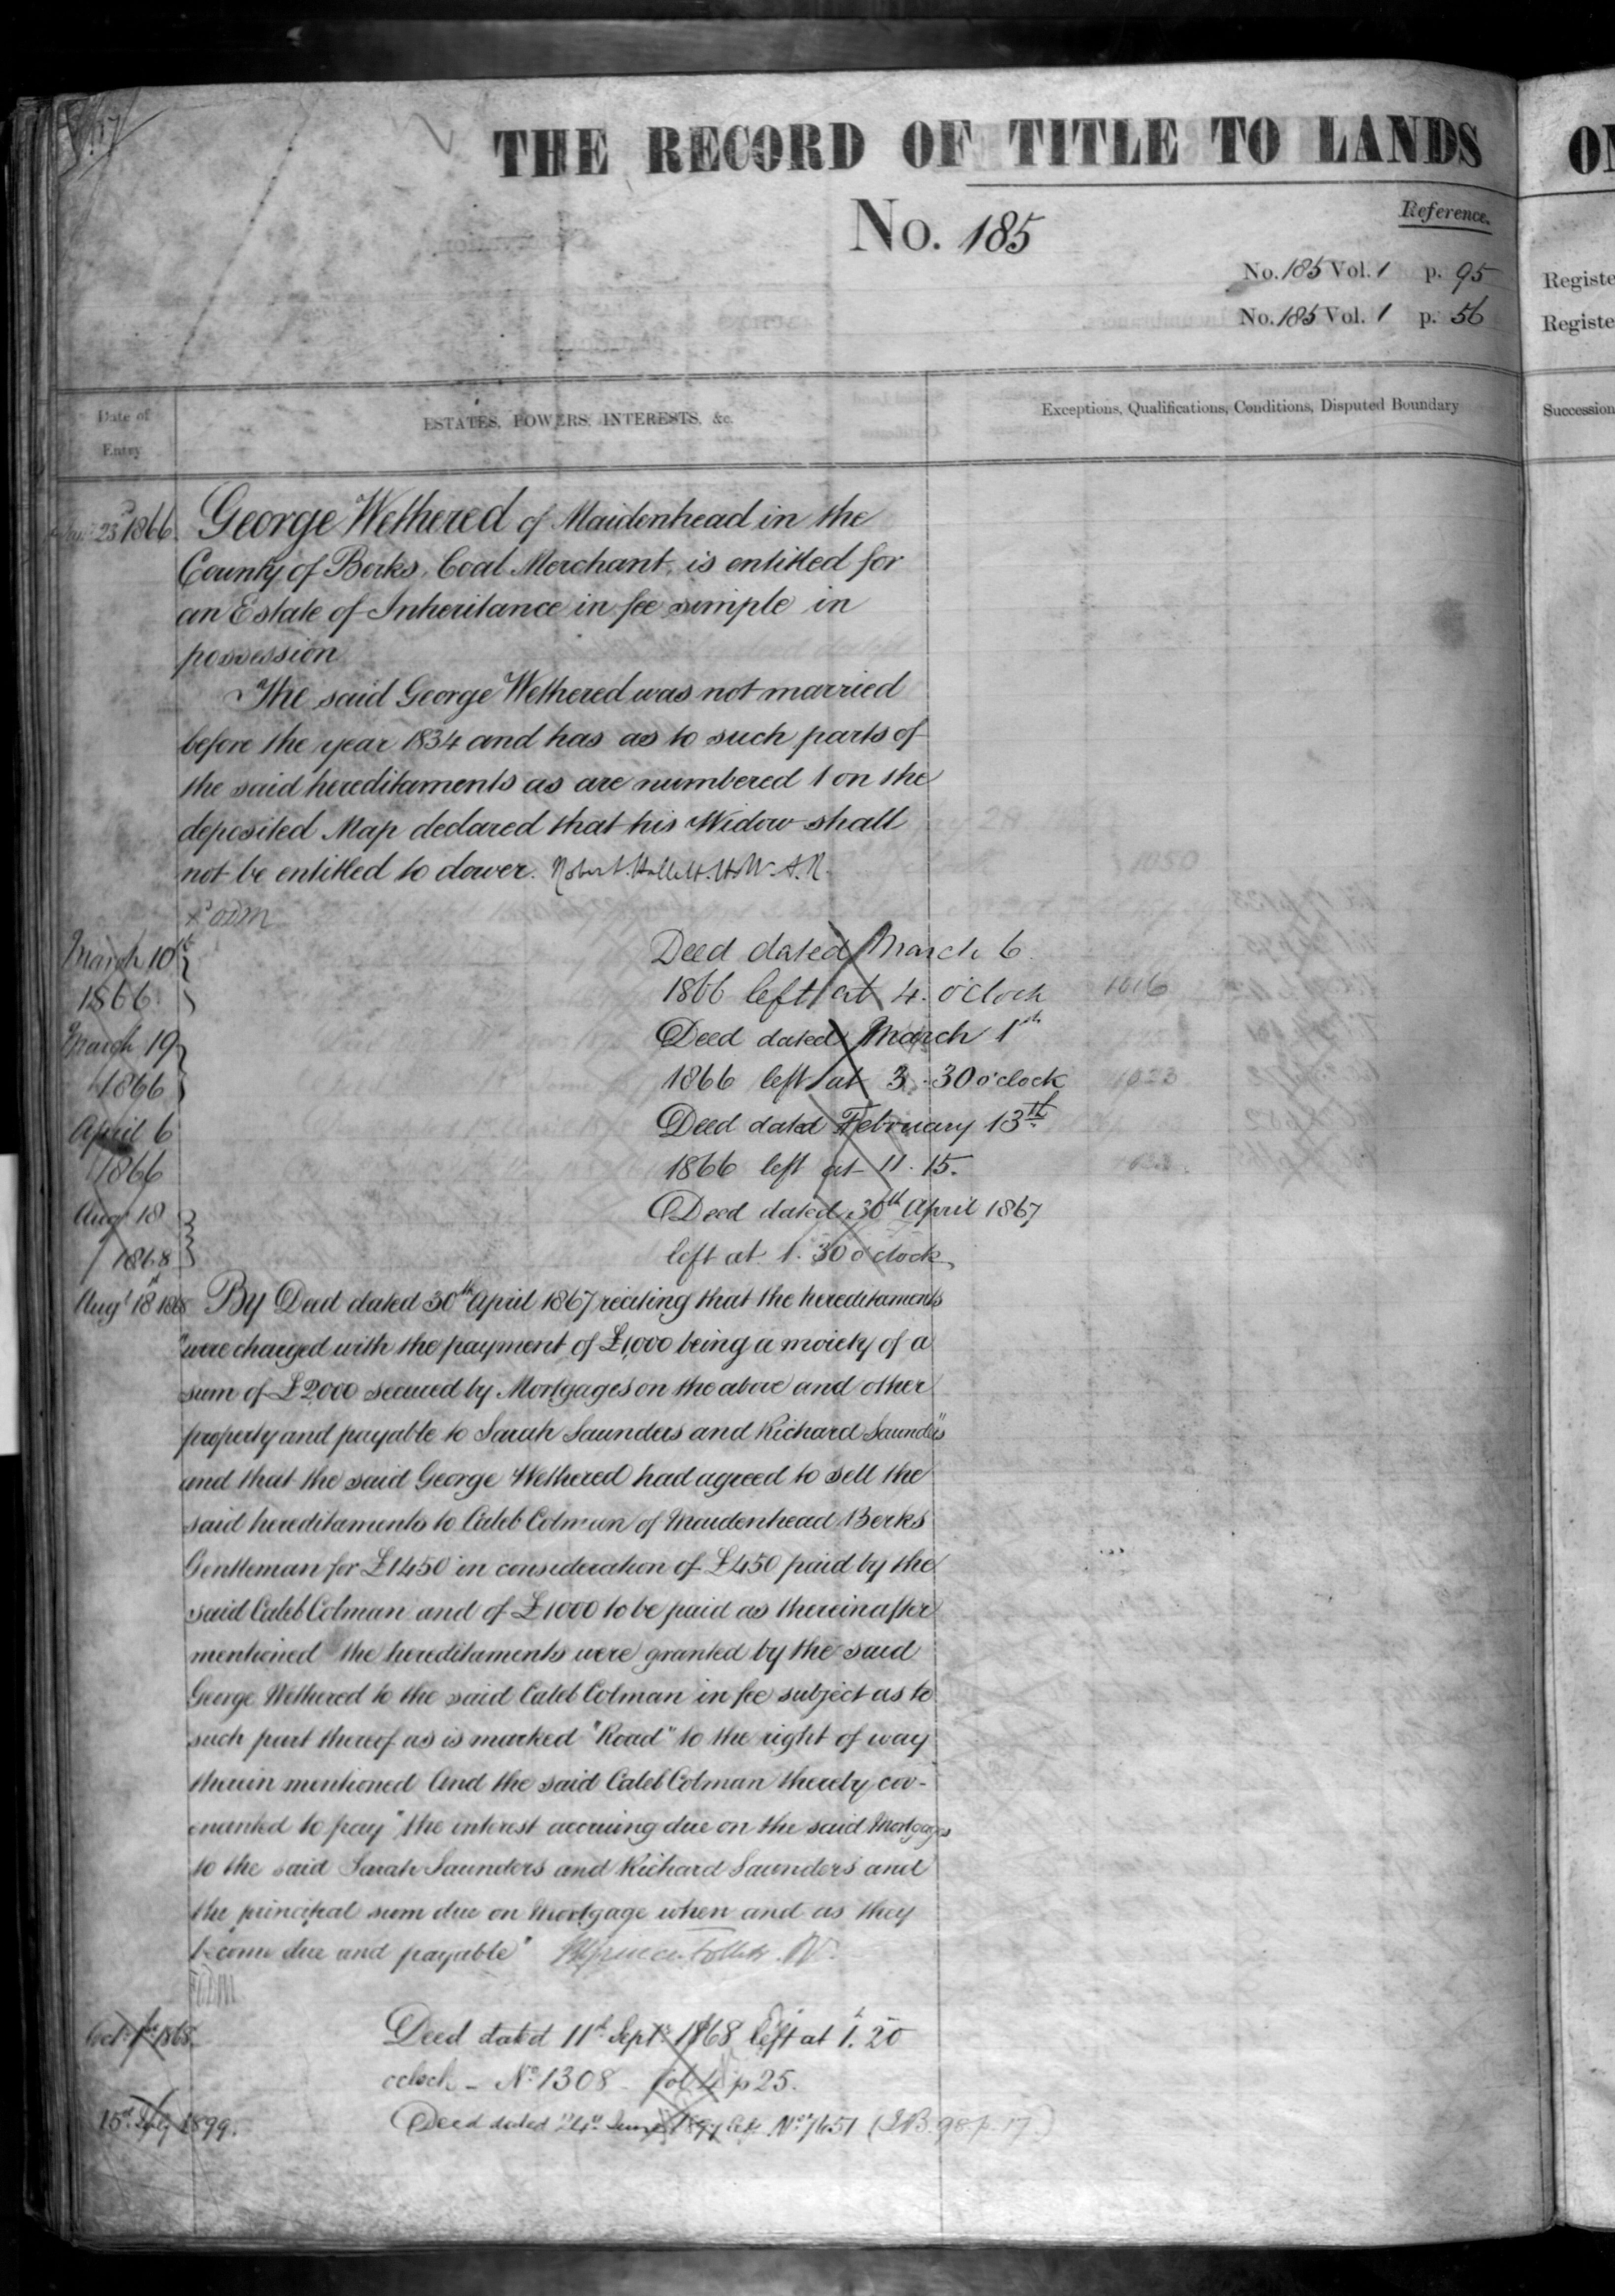 THE RECORD OF TITLE TO LANDS
No. 185
Reference.
No. 185 Vol. 1 p. 95
No. 185 Vol. 1 p. 56
Registe
Registe
Date of
Entry
ESTATES, POWERS, INTERESTS, &c.
Exceptions, Qualifications, Conditions, Disputed Boundary
Succession
23 1866 George Wethered of Maidenhead in the
County of Berks, Coal Merchant, is entitled for
an Estate of Inheritance in fee simple in
possession
The said George Wethered was not married
before the year 1834 and has as to such parts of
the said hereditaments as are numbered 1 on the
deposited Map declared that his Widow shall
not be entitled to dower.
March 10 Deed dated March 6
1866 1866 left at 4. o'clock
March 19 Deed dated March 1
1866 1866 left at 3.30 o'clock
April 6 Deed dated February 13th
1866 1866 left at 11.15.
Aug 18 Deed dated 30th April 1867
1868 left at 1.30 o'clock
Augt 18 1868 By Deed dated 30th April 1867 reciting that the hereditaments
"were charged with the payment of £1,000 being a moiety of a
sum of £2000 secured by Mortgages on the above and other
property and payable to Sarah Saunders and Richard Saunders"
and that the said George Wethered had agreed to sell the
said hereditaments to Caleb Colman of Maidenhead Berks
Gentleman for £1450 in consideration of £450 paid by the
said Caleb Colman and of £1000 to be paid as thereinafter
mentioned the hereditaments were granted by the said
George Wethered to the said Caleb Colman in fee subject as to
such part thereof as is marked "Road" to the right of way
therein mentioned And the said Caleb Colman thereby cov-
enanted to pay "the interest accruing due on the said Mortgages
to the said Sarah Saunders and Richard Saunders and
the principal sum due on Mortgage when and as they
become due and payable"
Oct. 1st 1868. Deed dated 11th Septr 1868 left at 1.20
oclock - No. 1308 - Vol 4 p 25.
15th July 1899. Deed dated 24th June 1899 No. 7651